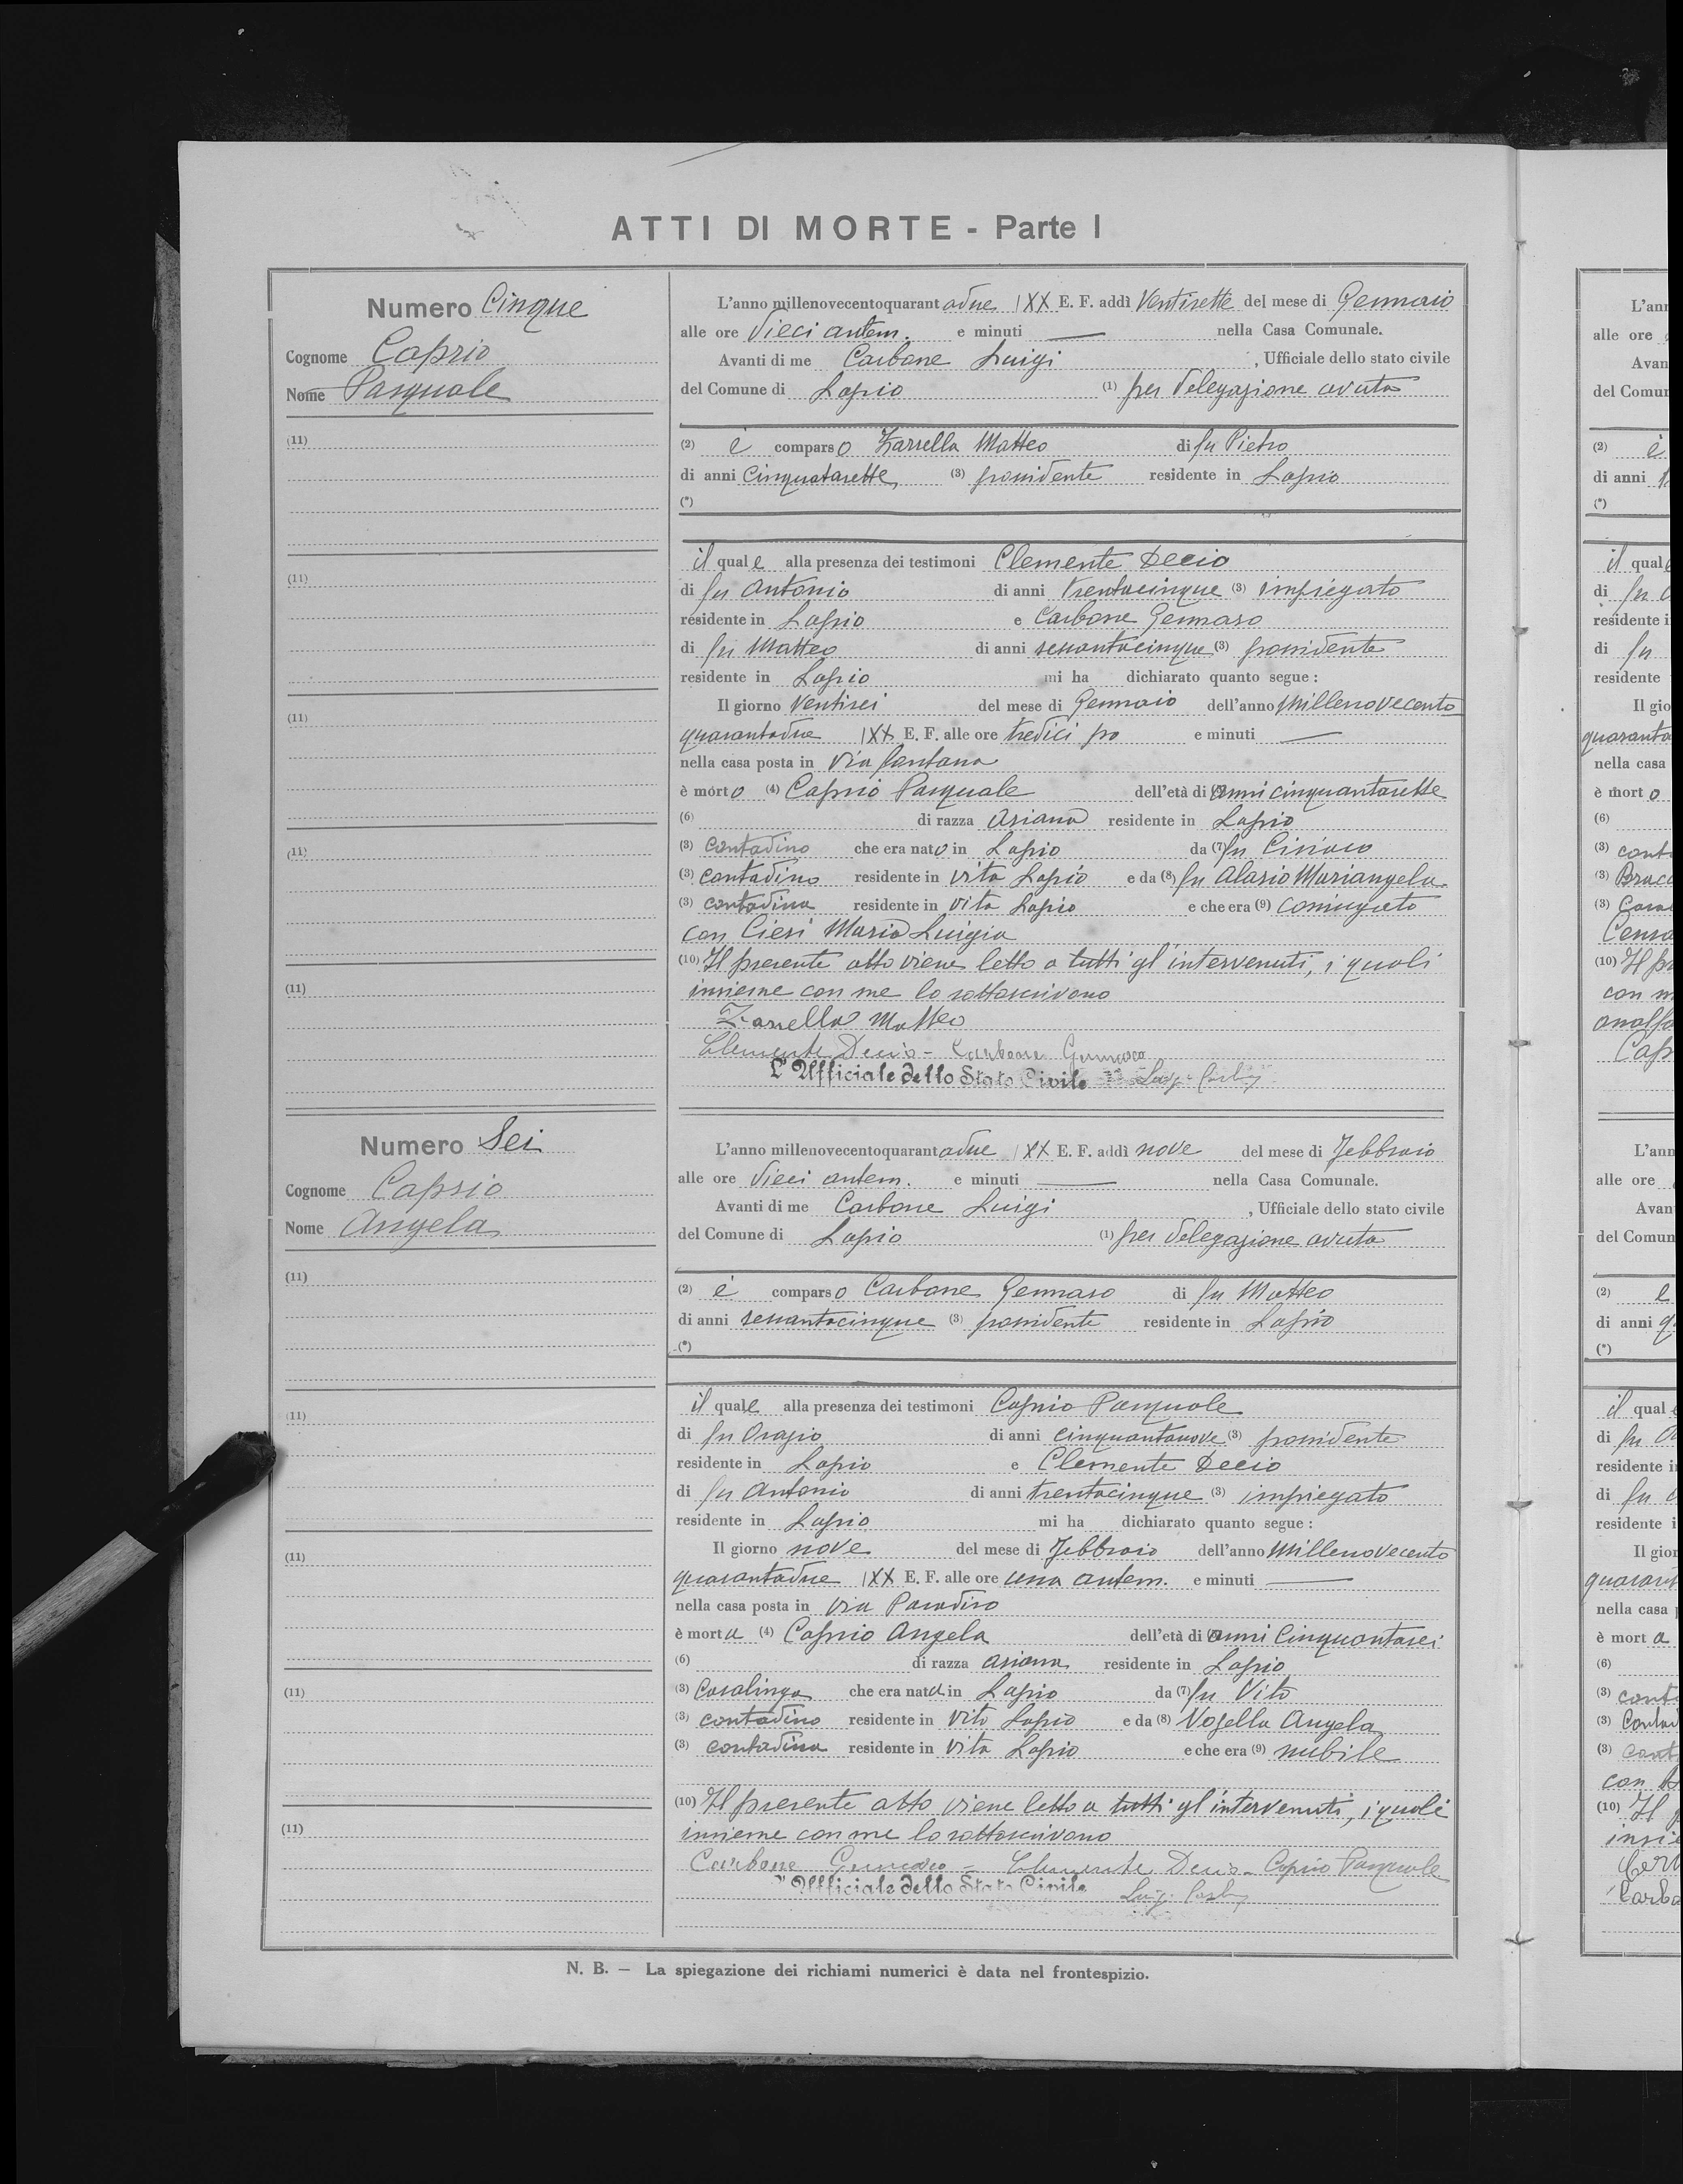 ATTI DI MORTE - Parte I
Numero Cinque
Cognome Caprio
Nome Pasquale
(11)
(11)
(11)
(11)
(11)
L'anno millenovecentoquarantadue IXX E. F. addì Ventisette del mese di Gennaio
alle ore dieci antem. e minuti — nella Casa Comunale.
Avanti di me Carbone Luigi, Ufficiale dello stato civile
del Comune di Lapio (1) per delegazione avuta
(2) è comparso Zarrella Matteo di fu Pietro
di anni Cinquatasette (3) possidente residente in Lapio
(*)
il quale alla presenza dei testimoni Clemente Decio
di fu Antonio di anni trentacinque (3) impiegato
residente in Lapio e Carbone Gennaro
di fu Matteo di anni sessantacinque (3) possidente
residente in Lapio mi ha dichiarato quanto segue:
Il giorno Ventisei del mese di Gennaio dell'anno millenovecento
quarantadue IXX E. F. alle ore tredici e minuti —
nella casa posta in Via fontana
è morto (4) Caprio Pasquale dell'età di anni cinquantasette
(6) di razza Ariana residente in Lapio
(3) Contadino che era nato in Lapio da (7) fu Ciriaco
(3) contadino residente in vita Lapio e da (8) fu Alasio Mariangela
(3) contadina residente in vita Lapio e che era (9) coniugato
con Cieri Maria Luigia
(10) Il presente atto viene letto a tutti gl'intervenuti, i quali
insieme con me lo sottoscrivono
Zarrella Matteo
Clemente Decio - Carbone Gennaro
L'Ufficiale dello Stato Civile Luigi Carbone
Numero Sei
Cognome Caprio
Nome Angela
(11)
(11)
(11)
(11)
(11)
L'anno millenovecentoquarantadue IXX E. F. addì nove del mese di Febbraio
alle ore dieci antem. e minuti — nella Casa Comunale.
Avanti di me Carbone Luigi, Ufficiale dello stato civile
del Comune di Lapio (1) per delegazione avuta
(2) è comparso Carbone Gennaro di fu Matteo
di anni sessantacinque (3) possidente residente in Lapio
(*)
il quale alla presenza dei testimoni Caprio Pasquale
di fu Orazio di anni cinquantanove (3) possidente
residente in Lapio e Clemente Decio
di fu Antonio di anni trentacinque (3) impiegato
residente in Lapio mi ha dichiarato quanto segue:
Il giorno nove del mese di Febbraio dell'anno millenovecento
quarantadue IXX E. F. alle ore una antem. e minuti —
nella casa posta in Via Paradiso
è morta (4) Caprio Angela dell'età di anni Cinquantasei
(6) di razza ariana residente in Lapio
(3) Casalinga che era nata in Lapio da (7) fu Vito
(3) contadino residente in vita Lapio e da (8) Vozella Angela
(3) contadina residente in vita Lapio e che era (9) nubile
(10) Il presente atto viene letto a tutti gl'intervenuti, i quali
insieme con me lo sottoscrivono
Carbone Gennaro - Clemente Decio - Caprio Pasquale
L'Ufficiale dello Stato Civile Luigi Carbone
N. B. — La spiegazione dei richiami numerici è data nel frontespizio.